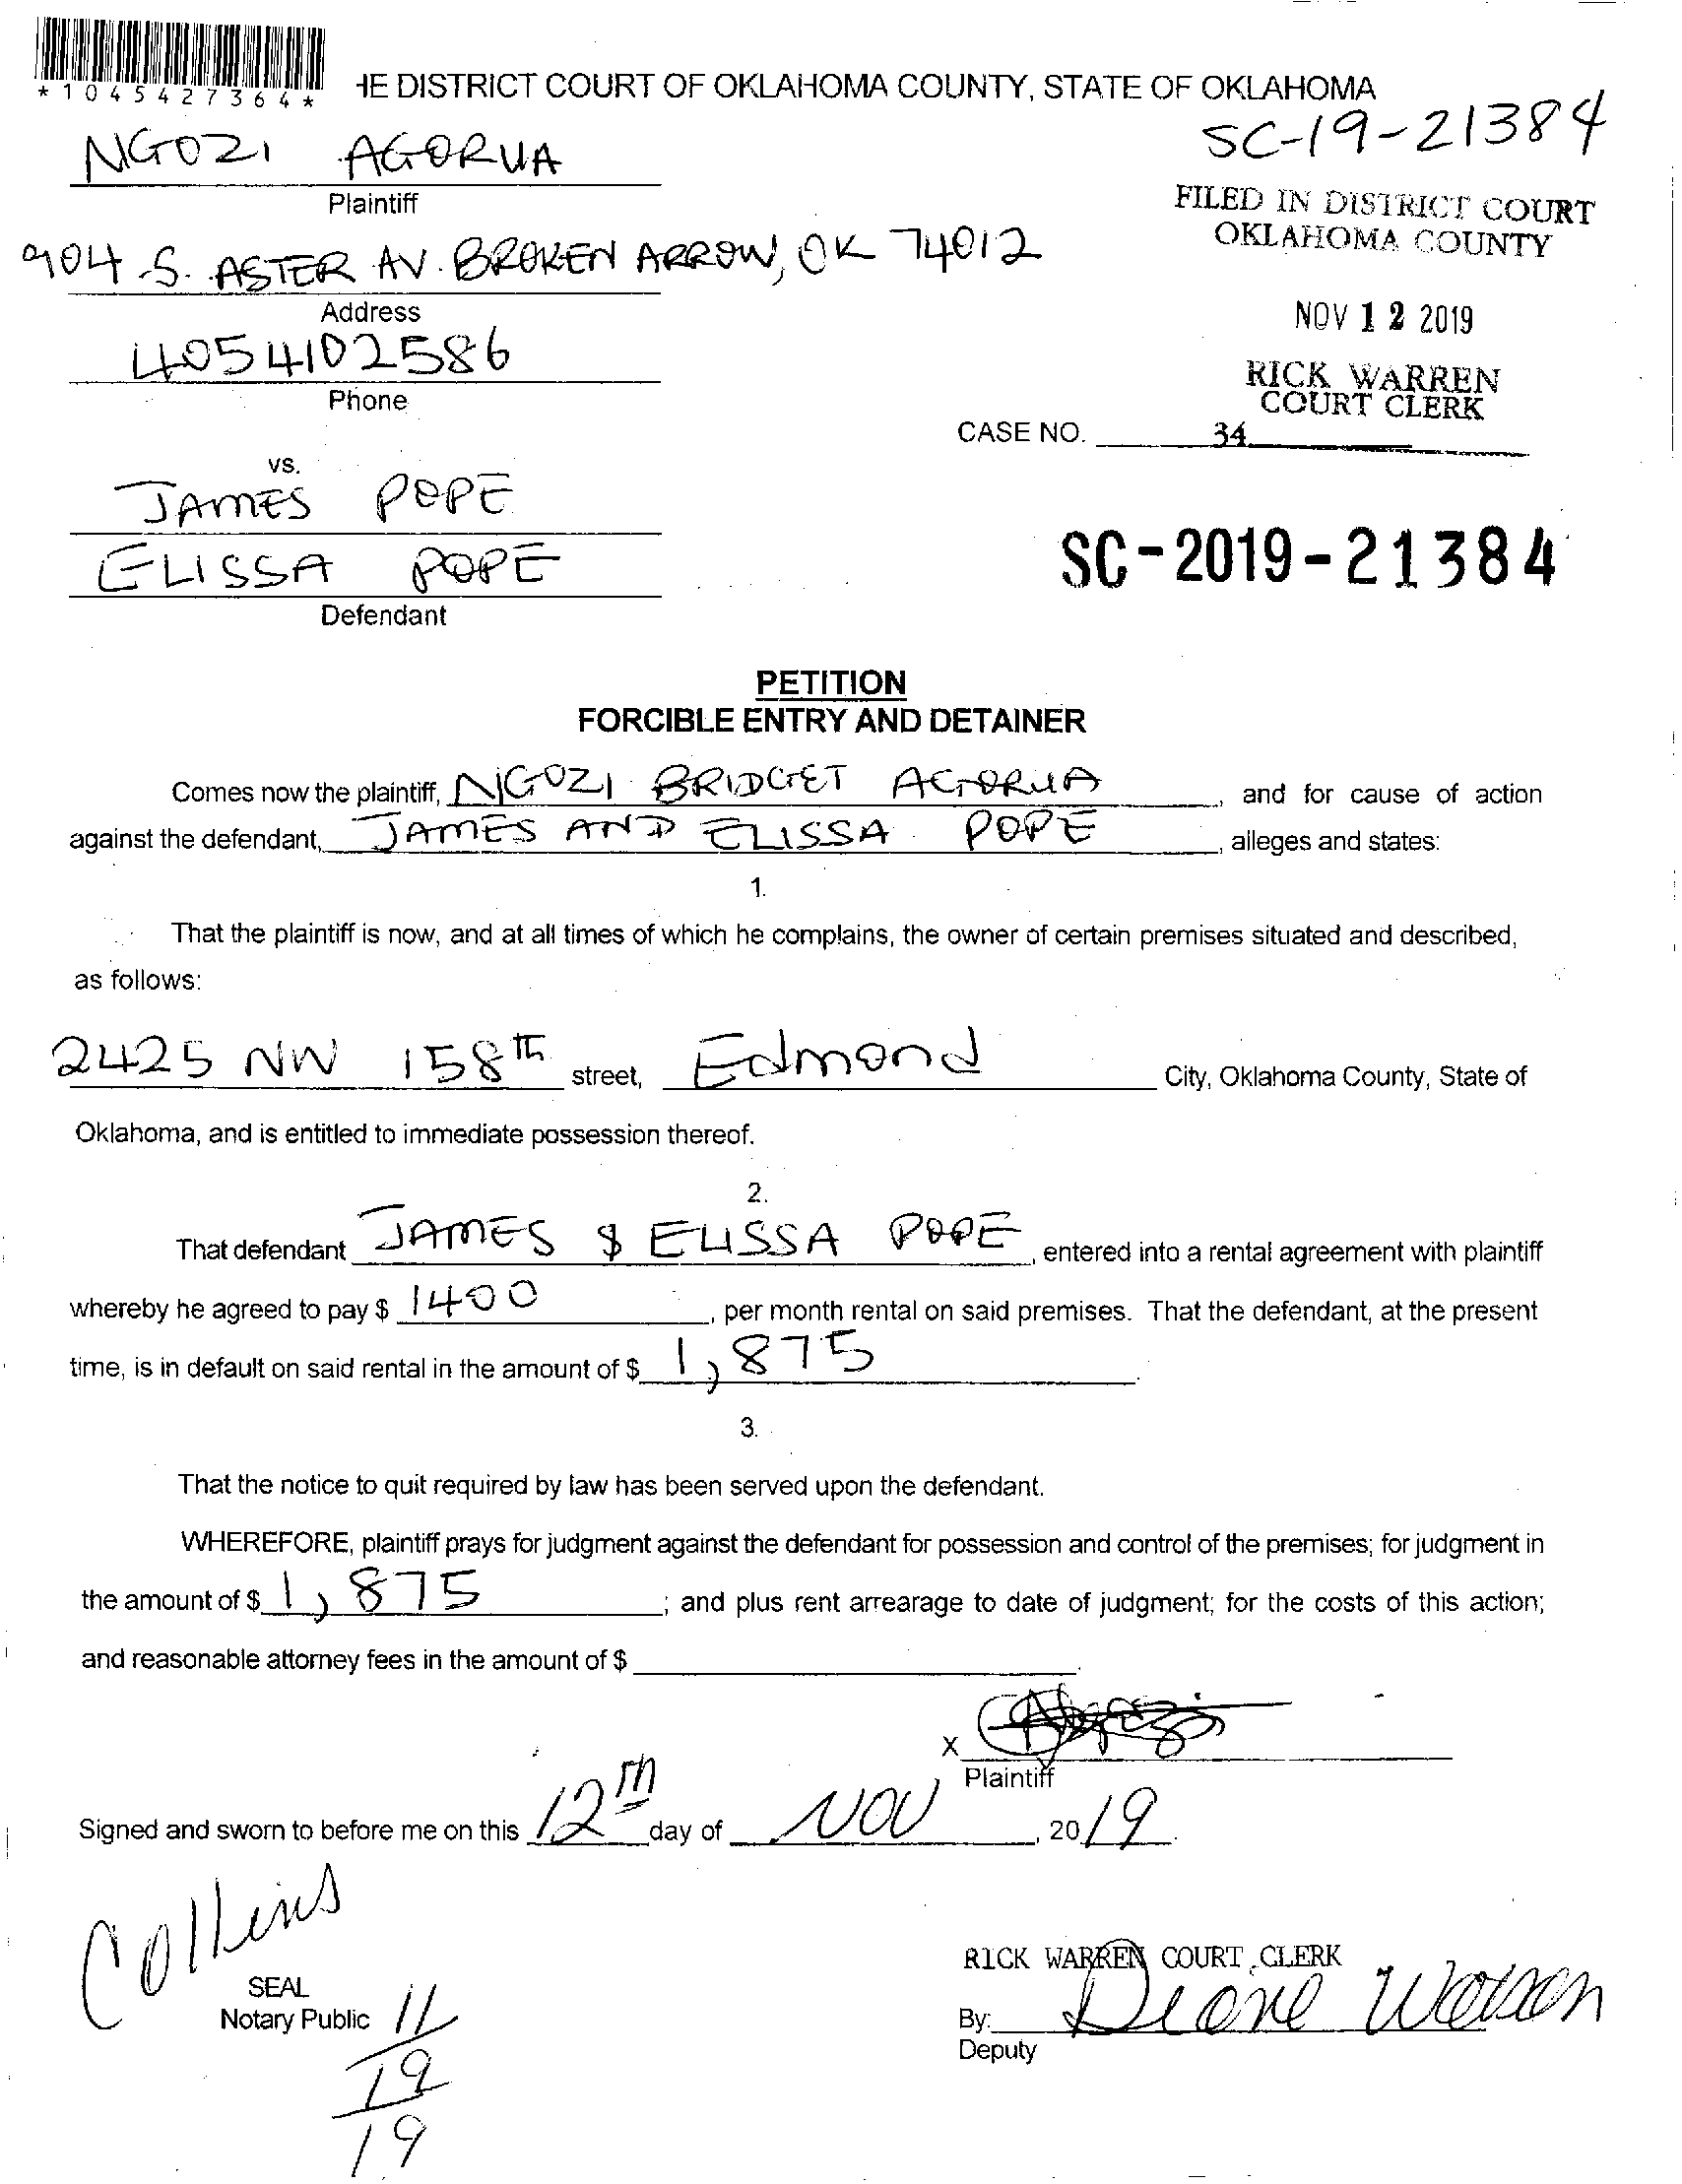 *1045427364*
HE DISTRICT COURT OF OKLAHOMA COUNTY, STATE OF OKLAHOMA
SC-19-21384
NGOZI AGORUA
Plaintiff
FILED IN DISTRICT COURT
OKLAHOMA COUNTY
904 S. ASTER AV. BROKEN ARROW, OK 74012
Address
NOV 12 2019
4054102586
Phone
RICK WARREN
COURT CLERK
CASE NO. 34
vs.
JAMES POPE
ELISSA POPE
Defendant
SC-2019-21384
PETITION
FORCIBLE ENTRY AND DETAINER
Comes now the plaintiff, NGOZI BRIDGET AGORUA, and for cause of action
against the defendant, JAMES AND ELISSA POPE, alleges and states:
1.
That the plaintiff is now, and at all times of which he complains, the owner of certain premises situated and described,
as follows:
2425 NW 158TH street, Edmond City, Oklahoma County, State of
Oklahoma, and is entitled to immediate possession thereof.
2.
That defendant JAMES & ELISSA POPE, entered into a rental agreement with plaintiff
whereby he agreed to pay $ 1400, per month rental on said premises. That the defendant, at the present
time, is in default on said rental in the amount of $ 1,875.
3.
That the notice to quit required by law has been served upon the defendant.
WHEREFORE, plaintiff prays for judgment against the defendant for possession and control of the premises; for judgment in
the amount of $ 1,875; and plus rent arrearage to date of judgment; for the costs of this action;
and reasonable attorney fees in the amount of $ .
X
Plaintiff
Signed and sworn to before me on this 12th day of NOV, 2019.
Collins
SEAL
Notary Public
11
12
19
RICK WARREN COURT CLERK
By: Diane
Deputy